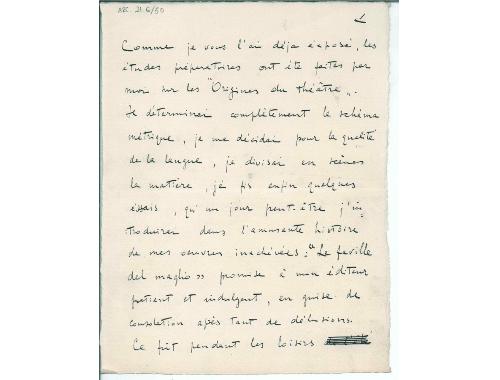 ARC. 21.6/50
1
Comme je vous l'ai déjà exposé, les
études préparatoires ont été faites par
moi sur les "Origines du théâtre".
Je determinai complètement le schéma
métrique, je me décidai pour la qualité
de la langue, je divisai en scènes
la matière, je fis enfin quelques
essais, qu'un jour peut-être j'in
troduirai dans l'amusante histoire
de mes oeuvres inachévées: "Le faville
del maglio" promise à mon éditeur
patient et indulgent, en guise de
consolation après tant de délusions.
Ce fût pendant les loisirs